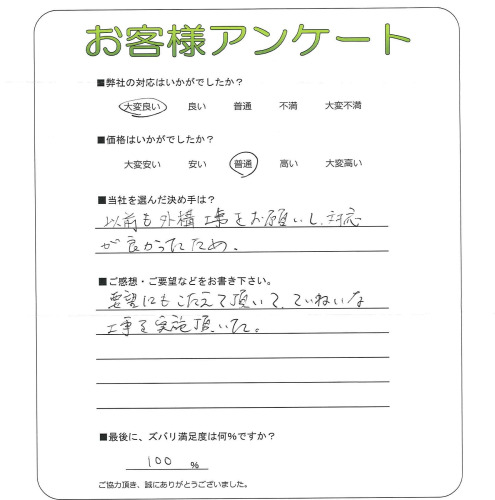 お客様アンケート
■弊社の対応はいかがでしたか？
大変良い 良い 普通 不満 大変不満
■価格はいかがでしたか？
大変安い 安い 普通 高い 大変高い
■当社を選んだ決め手は？
以前も外構工事をお願いし、対応
が良かったため。
■ご感想・ご要望などをお書き下さい。
要望にもこたえて頂いて、ていねいな
工事を実施頂いた。
■最後に、ズバリ満足度は何%ですか？
100 %
ご協力頂き、誠にありがとうございました。